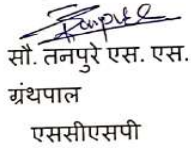 सौ. तनपुरे एस. एस.
ग्रंथपाल
एससीएसपी